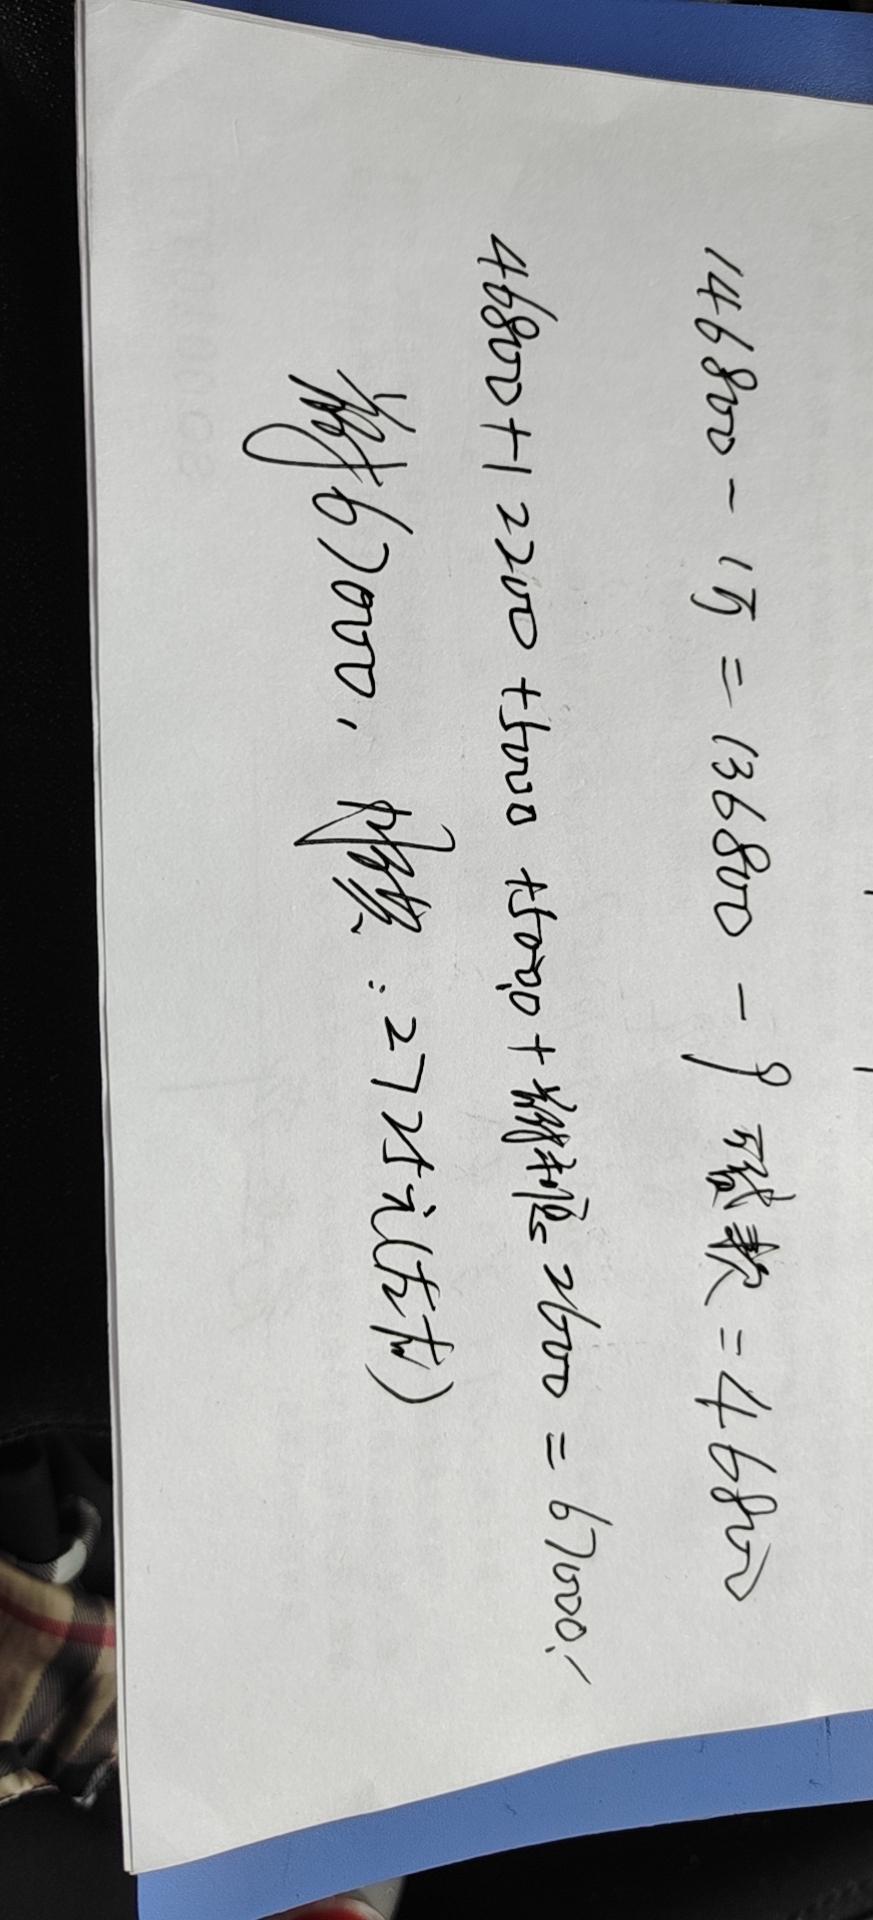 146800 - 1万 = 136800 - 9万贷款 = 46800
46800 + 12200 + 5000 + 5000 + 精品 2600 = 67000.
首付67000, 月供: 2725元(左右)